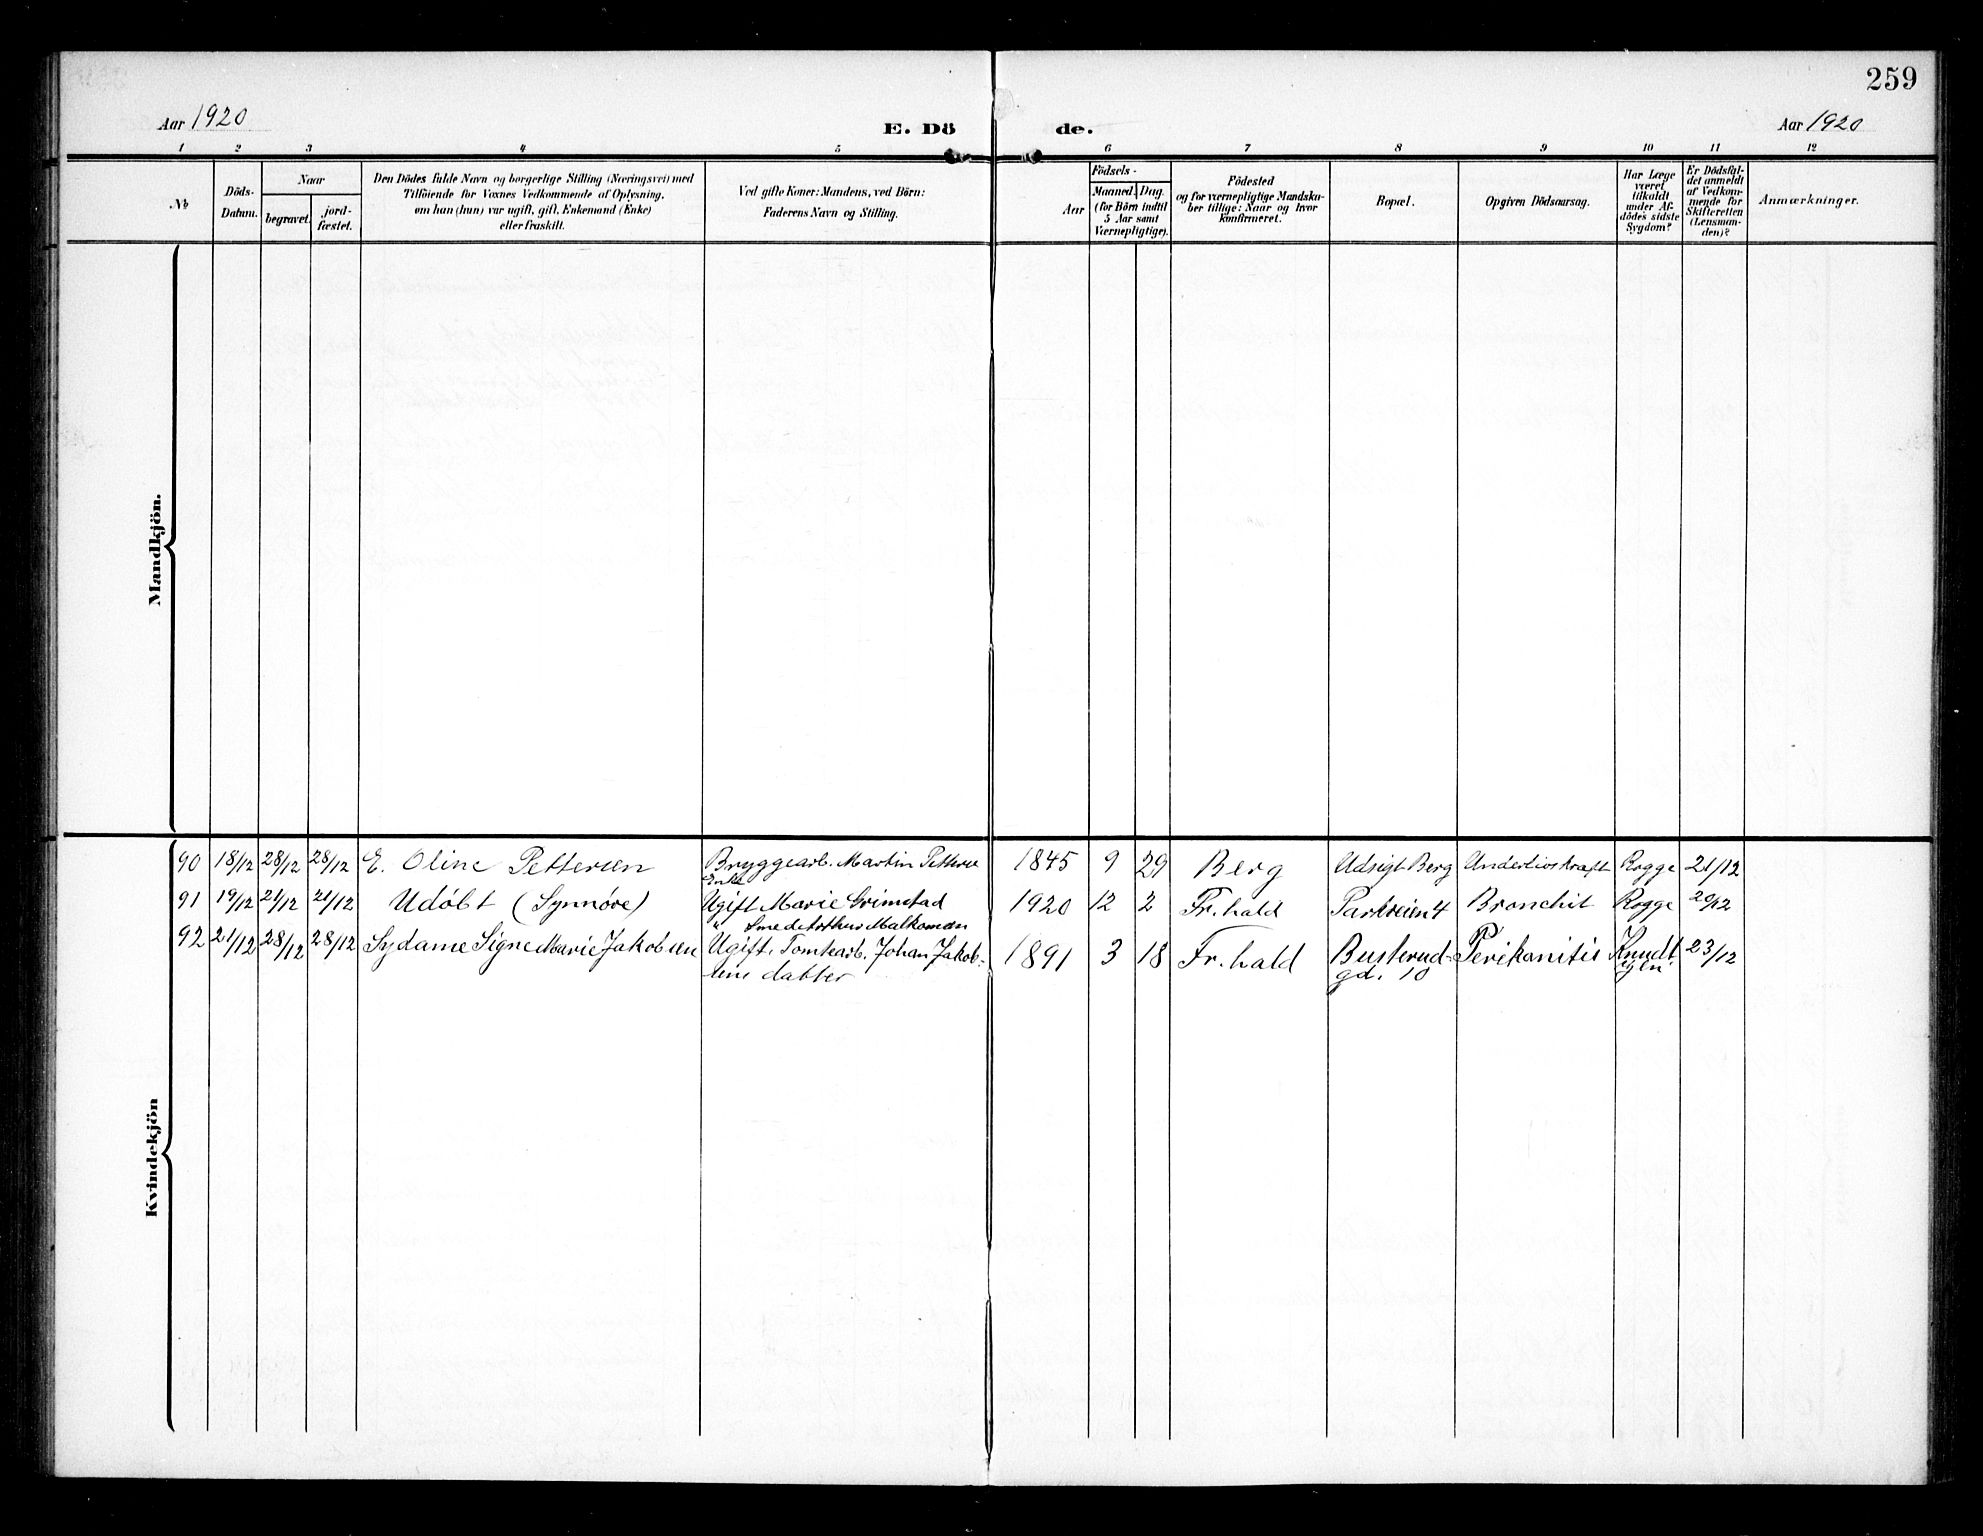 259
Aar 1920
E. Dö de.
Aar 1920
1 2 3 4 5 6 7 8 9 10 11 12
No
Döds-
Datum.
Naar
begravet.
jord-
fæstet.
Den Dödes fulde Navn og borgerlige Stilling (Næringsvei) med
Tilföiende for Voxnes Vedkommende af Oplysning,
om han (hun) var ugift, gift, Enkemand (Enke)
eller fraskilt.
Ved gifte Koner: Mandens, ved Börn:
Faderens Navn og Stilling.
Födsels-
Aar
Maaned. Dag.
(for Börn indtil
5 Aar samt
Værnepligtige).
Födested
og for værnepligtige Mandska-
ber tillige: Naar og hvor
konfirmeret.
Bopæl.
Opgiven Dödsaarsag.
Har Læge
været
tilkaldt
under Af-
dödes sidste
Sygdom?
Er Dödsfal-
det anmeldt
af Vedkom-
mende for
Skifteretten
(Lensman-
den)?
Anmærkninger.
Mandkjön.
Kvindekjön
90 18/12 28/12 28/12 E. Oline Pettersen Bryggearb. Martin Petterse 1845 9 29 Berg Udsigt Berg Rogge 21/12
Enke
91 19/12 21/12 21/12 Udöbt (Synnöve) Ugift Marie Grimstad 1920 12 2 Fr.hald Parkveien 4 Bronchit Rogge 20/12
" Smed Arthur Malkomæn
92 21/12 28/12 28/12 Sydame Signe Marie Jakobsen Ugift, Tomtearb. Johan Jakob- 1891 3 18 Fr.hald Busterud- Perikonitis Knudt 23/12
sens datter gd. 10